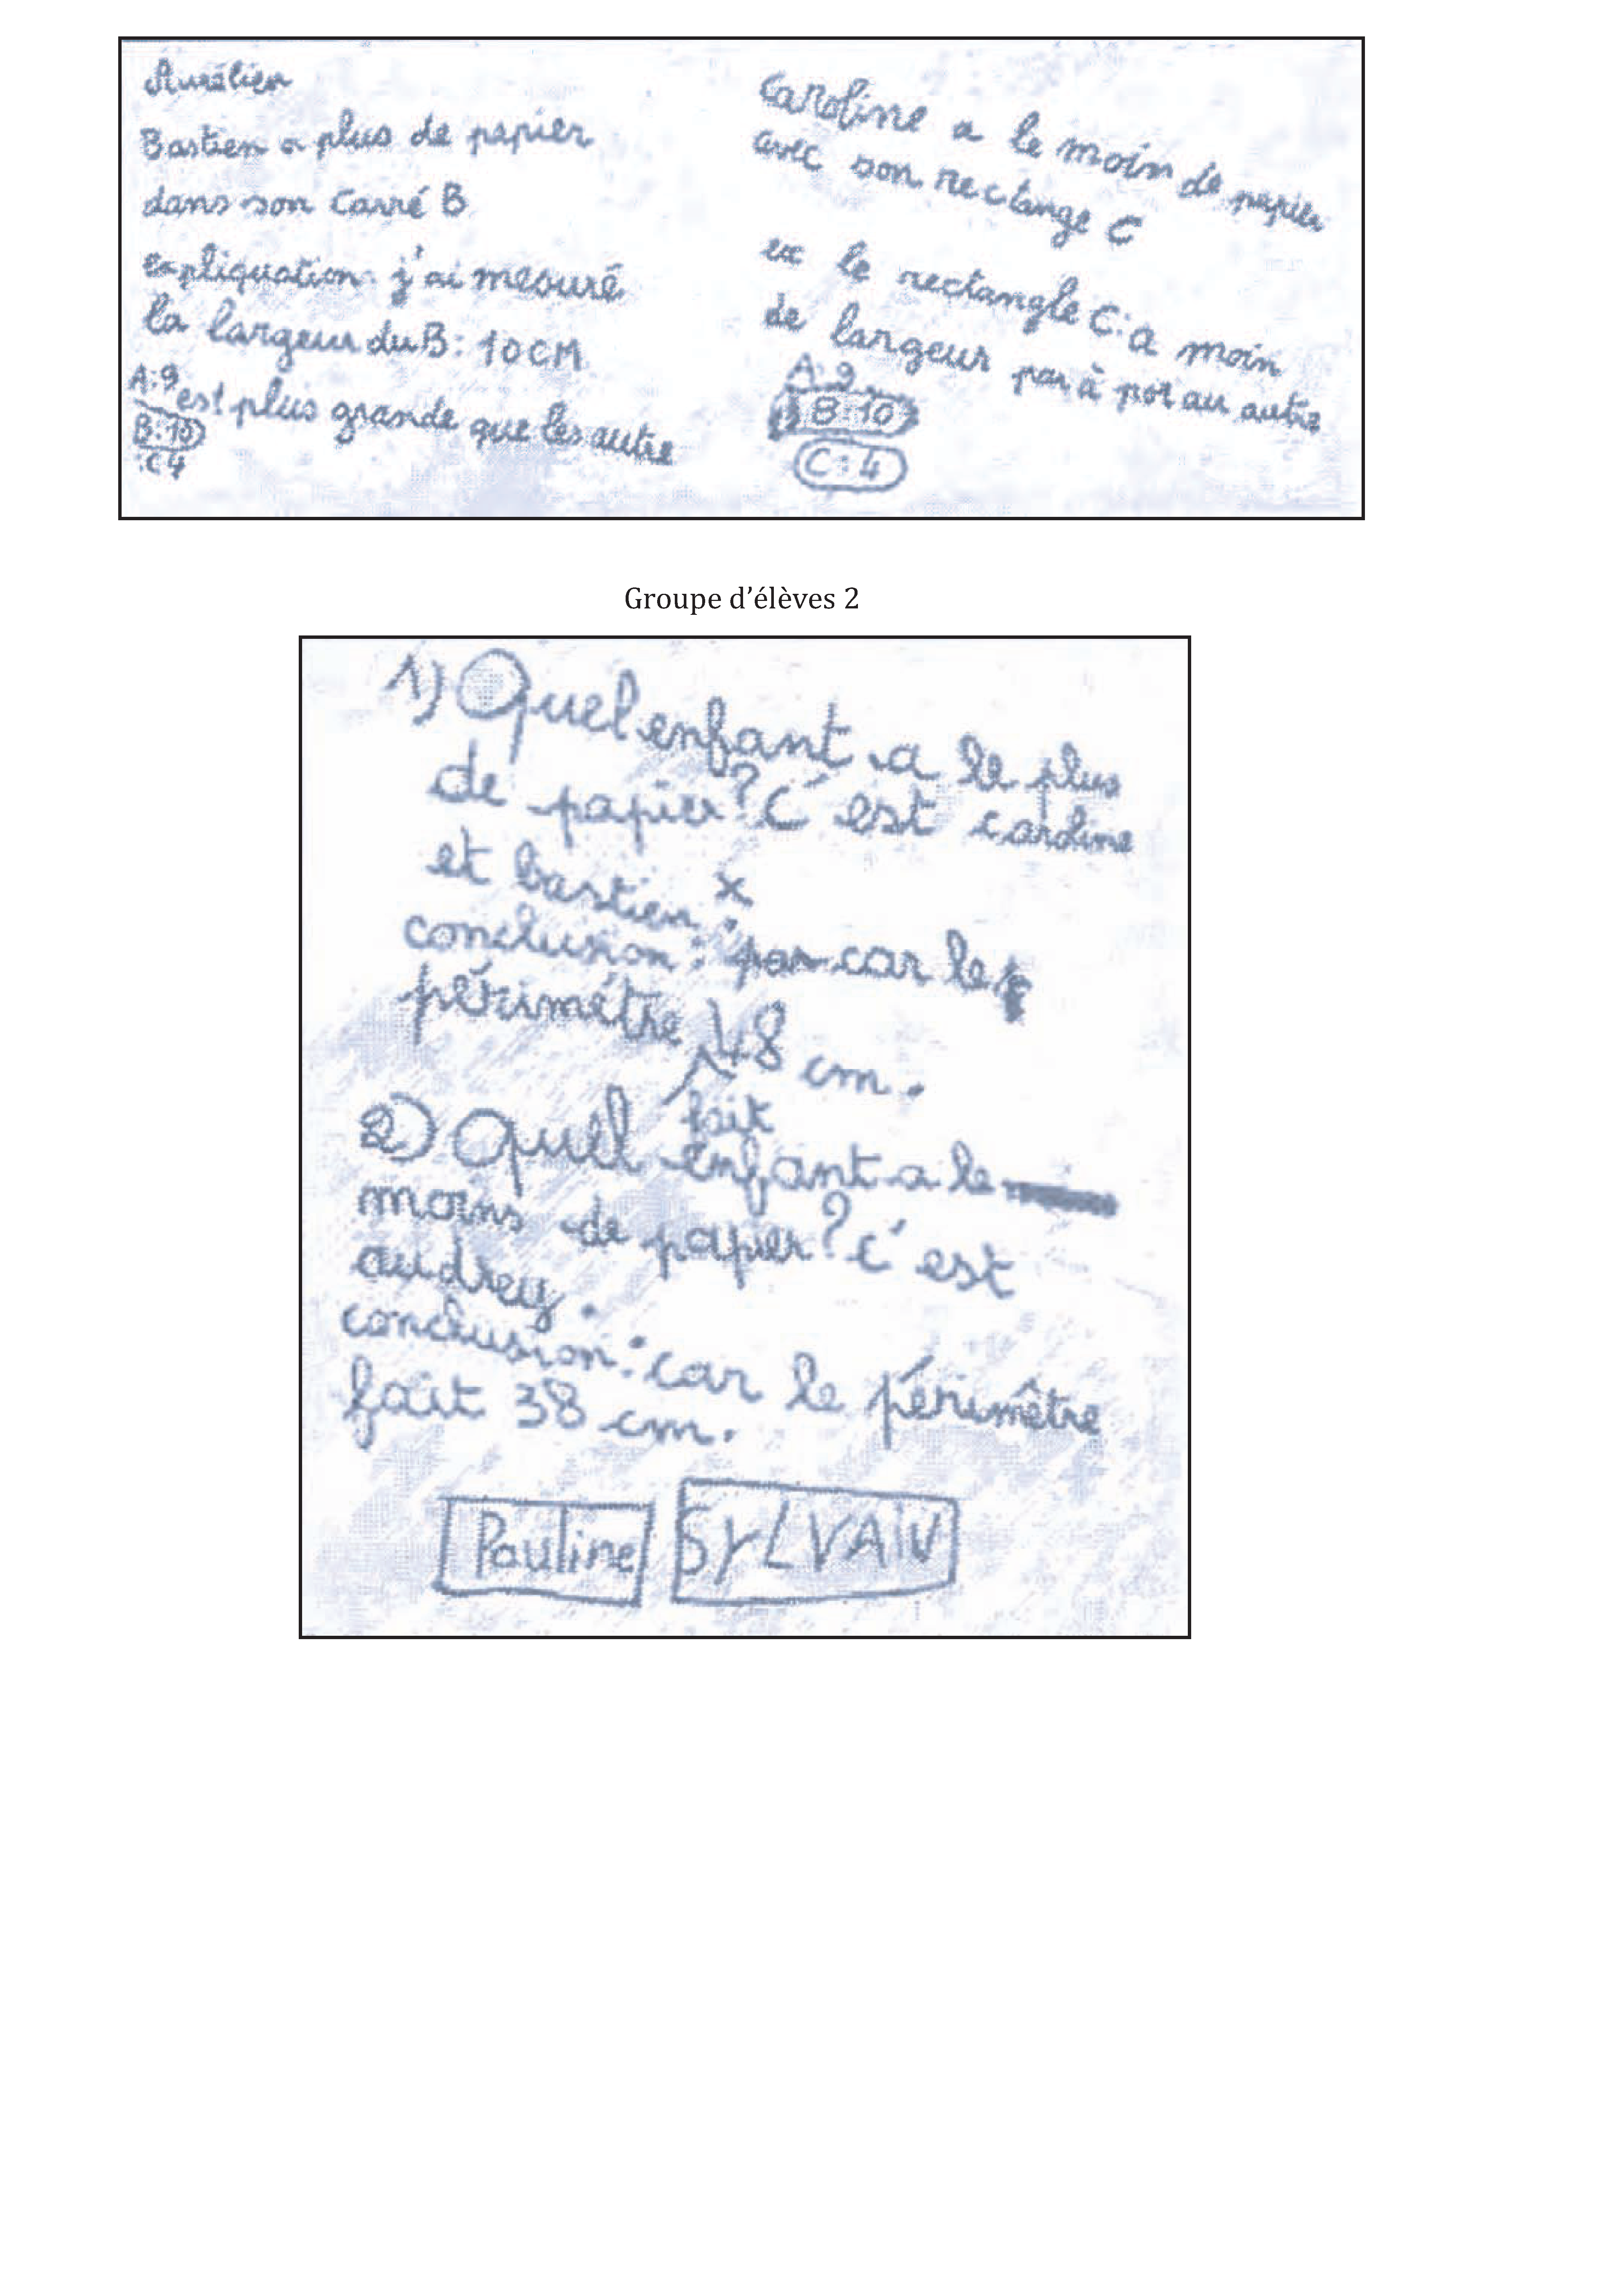 Aurélien
Bastien a plus de papier
dans son Carré B
expliquation : j'ai mesuré
la largeur du B : 10CM
A : 9
est plus grande que les autre
B : 10
C 4
Caroline a le moin de papier
avec son rectange C
ex le rectangle C : a moin
de largeur par à pot au autre
A : 9
B : 10
C : 4
Groupe d'élèves 2
1) Quel enfant a le plus
de papier ? C'est caroline
et bastien.
conclusion : par car le
périmétre 48 cm.
fait
2) Quel enfant a le
moins de papier ? c'est
audrey.
conclusion : car le périmêtre
fait 38 cm.
Pauline SYLVAIN